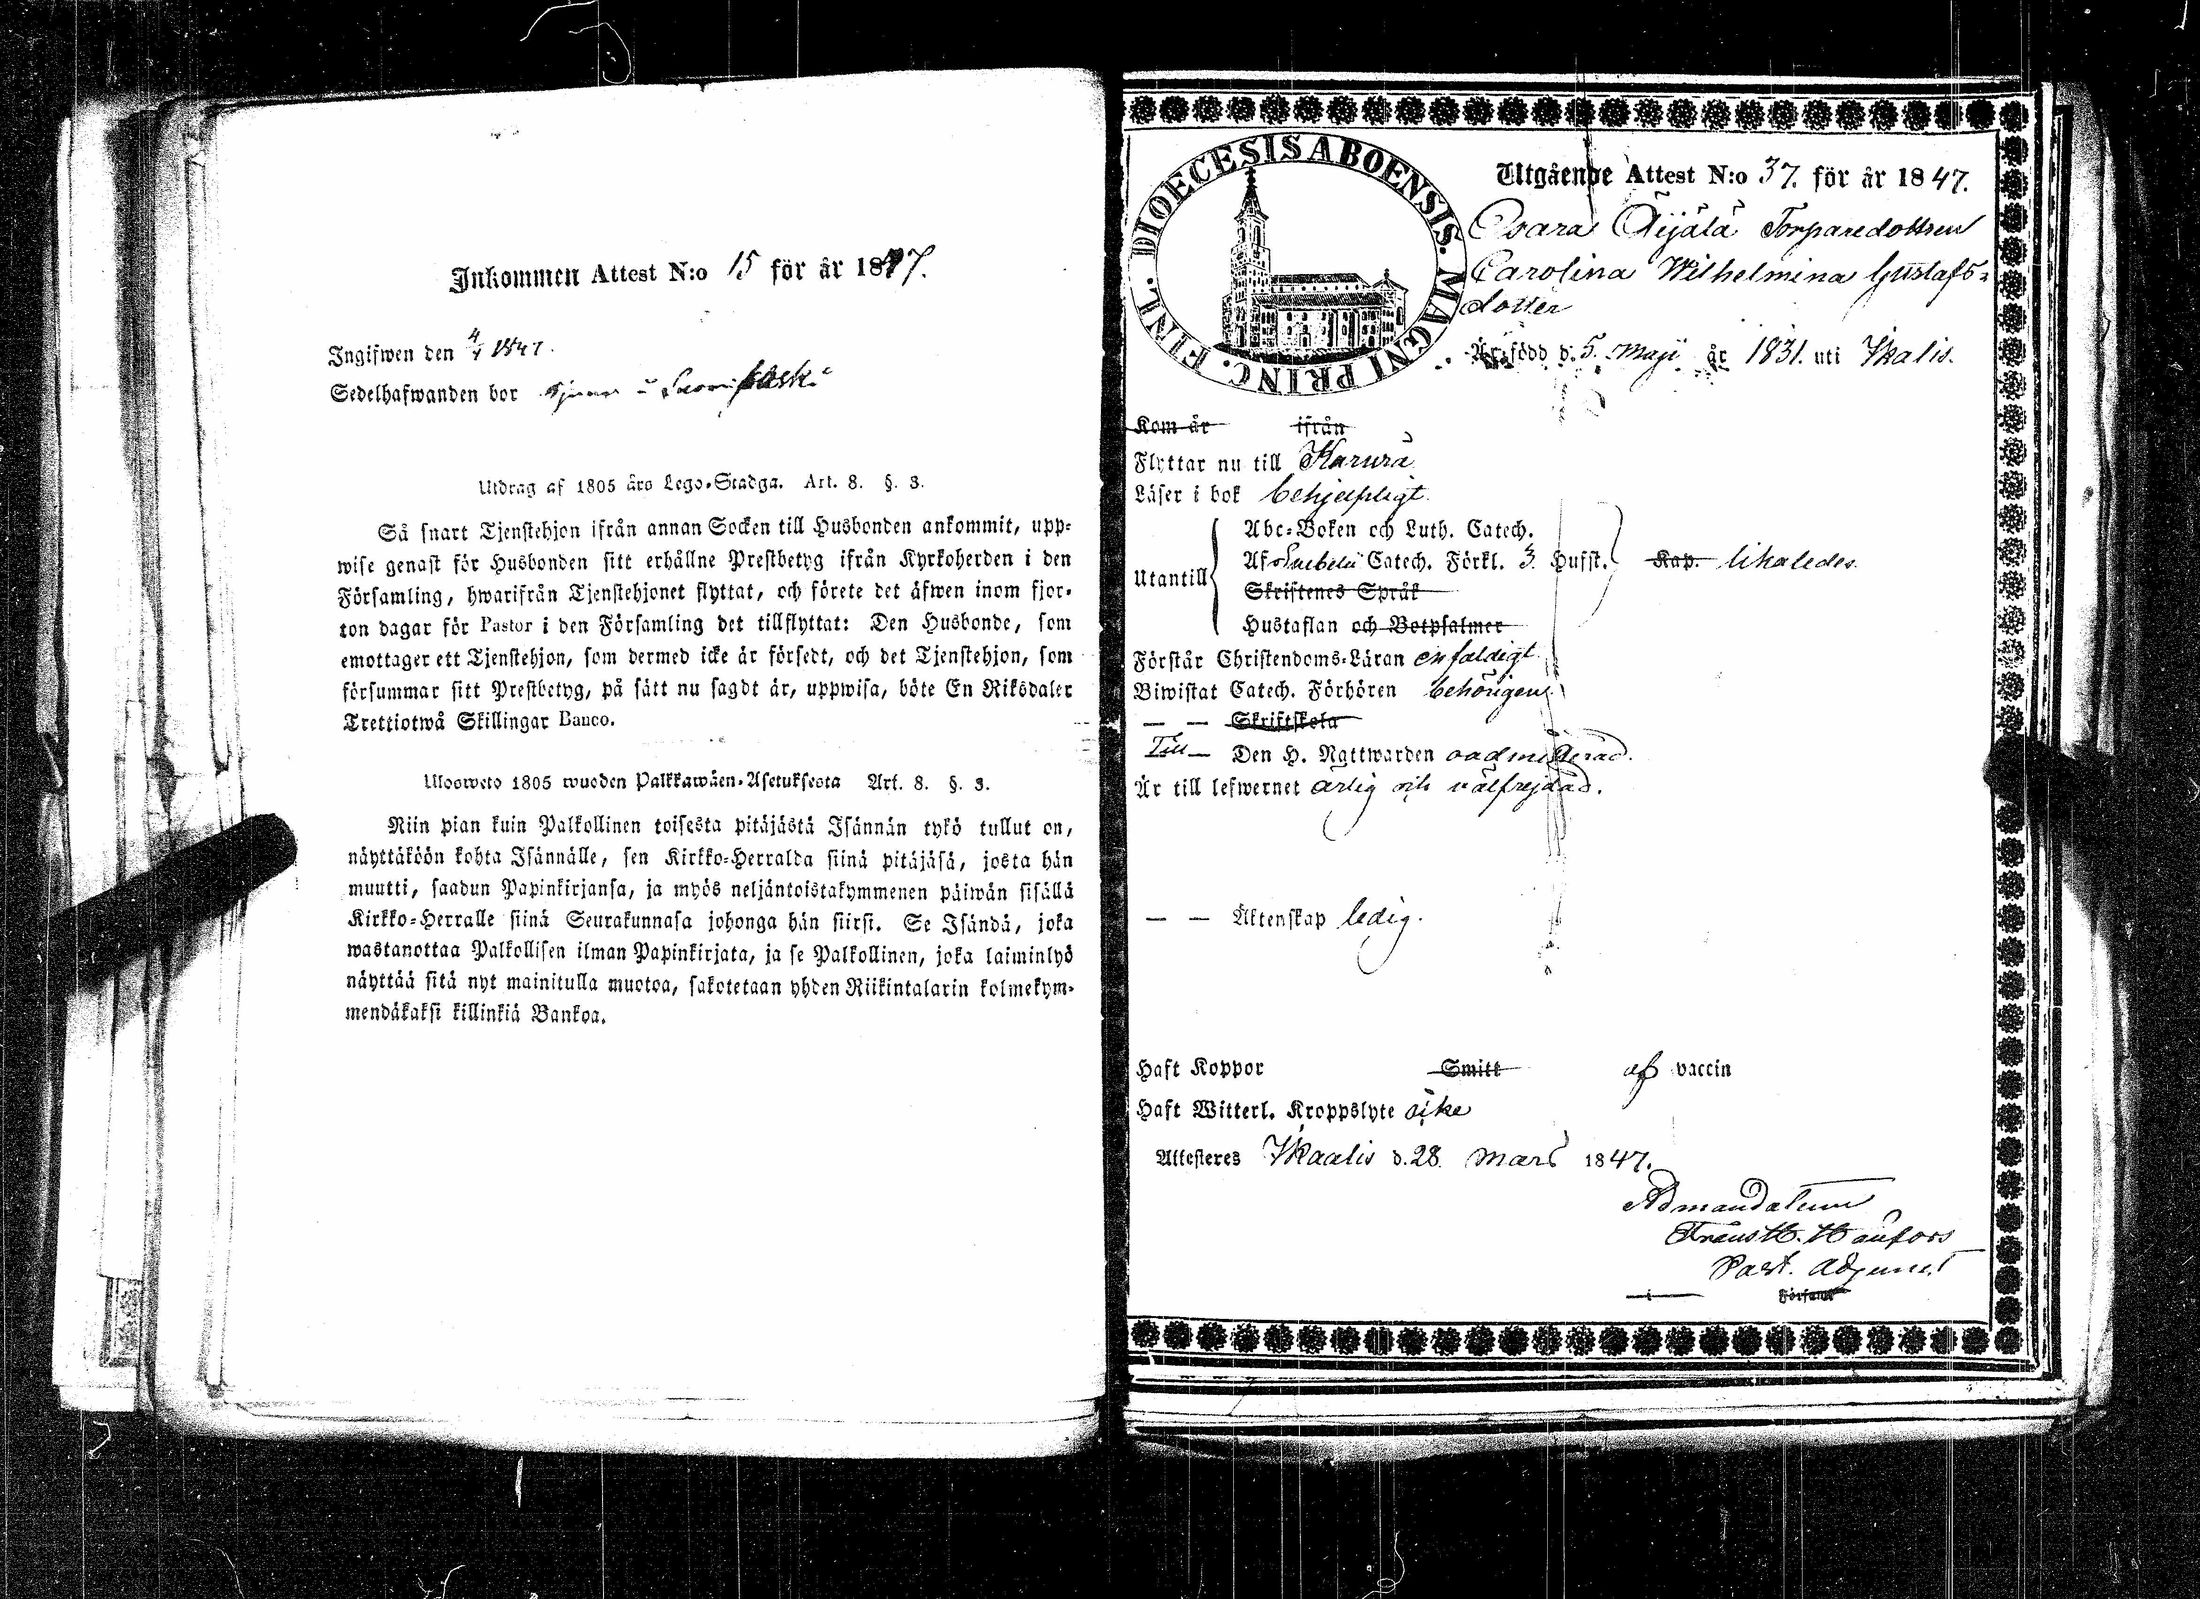 Inkommen Attest N:o 15 för år 1847.
Ingifwen den 4/4 1847.
Sedelhafwanden bor tjenar i
Utdrag af 1805 års Lego-Stadga. Art. 8. §. 3.
Så snart Tjenstehjon ifrån annan Socken till Husbonden ankommit, upp-
wise genast för Husbonden sitt erhållne Prestbetyg ifrån Kyrkoherden i den
Församling, hwarifrån Tjenstehjonet flyttat, och förete det äfwen inom fjor-
ton dagar för Pastor i den Församling det tillflyttat: Den Husbonde, som
emottager ett Tjenstehjon, som dermed icke är försedt, och det Tjenstehjon, som
försummar sitt Prestbetyg, på sätt nu sagdt är, uppwisa, böte En Riksdaler
Trettiotwå Skillingar Banco.
Ulosweto 1805 wuoden Palkkawäen-Asetuksesta Art. 8. §. 3.
Niin pian kuin Palkollinen toisesta pitäjästä Isännän tykö tullut on,
näyttäköön kohta Isännälle, sen Kirkko-Herralda siinä pitäjäsä, josta hän
muutti, saadun Papinkirjansa, ja myös neljäntoistakymmenen päiwän sisällä
Kirkko-Herralle siinä Seurakunnasa johonga hän siirsi. Se Isändä, joka
wastanottaa Palkollisen ilman Papinkirjata, ja se Palkollinen, joka laiminlyö
näyttää sitä nyt mainitulla muotoa, sakotetaan yhden Riikintalarin kolmekym-
mendäkaksi killinkiä Bankoa.
DIOECESIS ABOENSIS. MAGNI PRINC. FINL.
Utgående Attest N:o 37. för år 1847.
Äijälä Torparedottren
Carolina Wilhelmina Gustafs-
dotter
Är född d. 5. Maji år 1831. uti Ikalis.
Kom år ifrån
Flyttar nu till
Läser i bok behjelpligt.
Utantill
Abc-Boken och Luth. Catech.
Af Svebelii Catech. Förkl. 3. Hufst. Kap. likaledes
Skriftenes Språk
Hustaflan och Botpsalmer
Förstår Christendoms-Läran enfaldigt
Biwistat Catech. Förhören behörigen
— — Skriftskola
Till — Den H. Nattwarden oadmitterad.
Är till lefwernet ärlig och välfrejdad.
— — Äktenskap ledig.
Haft Koppor Smitt af vaccin
Haft Witterl. Kroppslyte icke
Attesteres Ikaalis d. 28. Mars 1847.
Ad mandatum
Past. Adjunct
i Församl